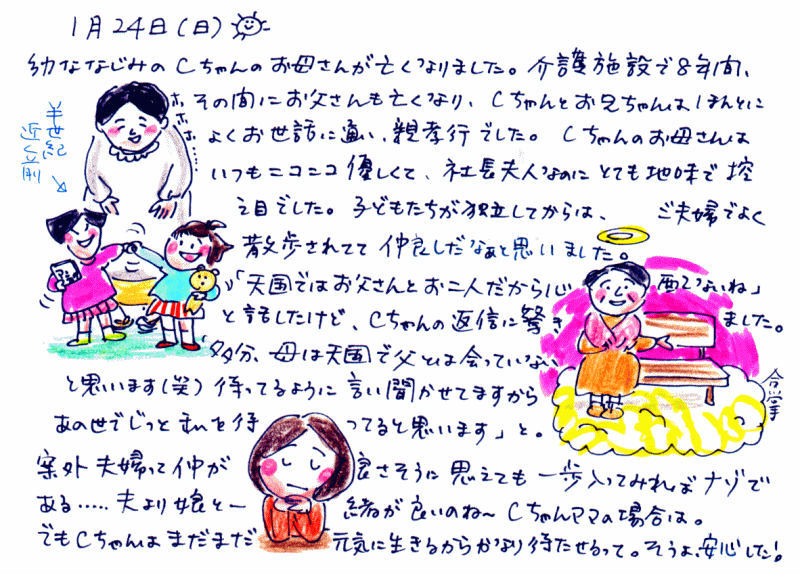 1月24日(日)
幼ななじみのCちゃんのお母さんが亡くなりました。介護施設で8年間、
その間にお父さんも亡くなり、Cちゃんとお兄ちゃんはほんとに
よくお世話に通い、親孝行でした。Cちゃんのお母さんは
いつもニコニコ優しくて、社長夫人なのにとても地味で控
え目でした。子どもたちが独立してからは、ご夫婦でよく
散歩されてて仲良しだなぁと思いました。
「天国ではお父さんとお二人だから心配ないね」
と話したけど、Cちゃんの返信に驚きました。
「多分、母は天国で父とは会っていない
と思います(笑)待ってるように言い聞かせてますから
あの世でじっと私を待ってると思います」と。
案外夫婦って仲が良さそうに思えても一歩入ってみればナゾで
ある……夫より娘と一緒が良いのね〜CちゃんママのA場合は。
でもCちゃんはまだまだ元気に生きるからかなり待たせるって。そうよ、安心した!
半世紀
近く前
ホホホホ……
合掌